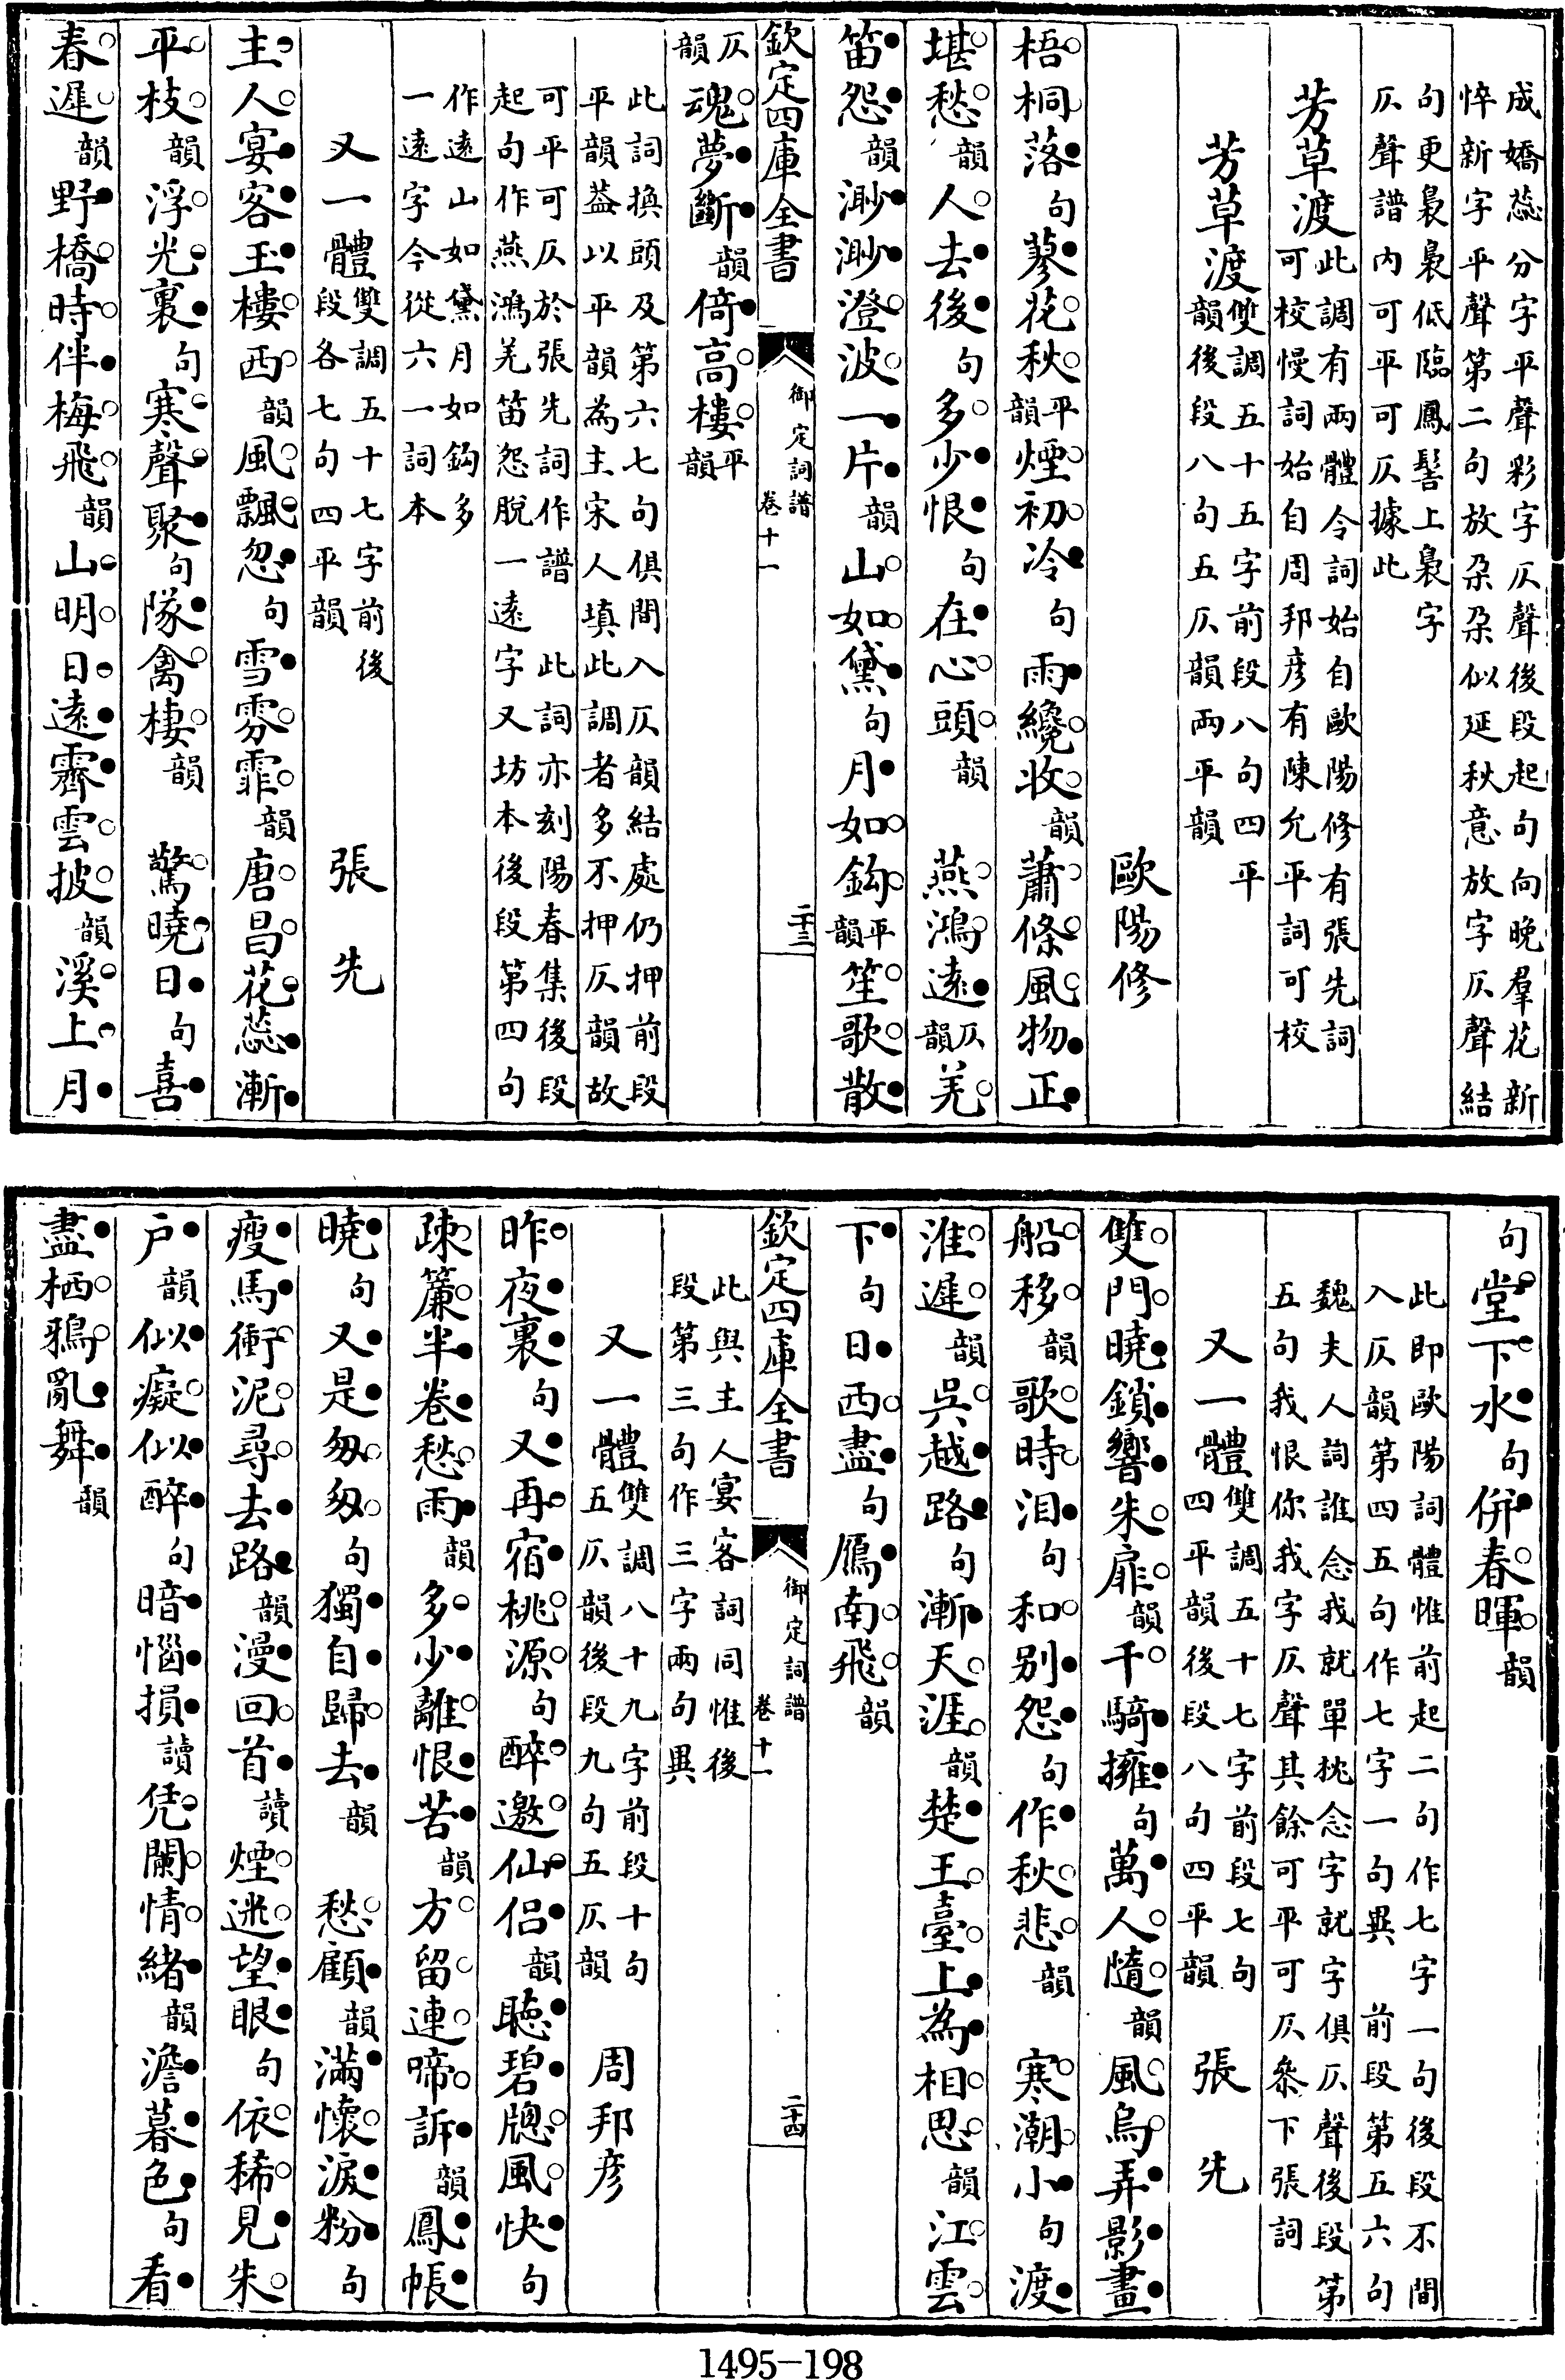 成嬌蕊分字平聲彩字仄聲後段起句向晚羣花新
悴新字平聲第二句放朶朶似延秋意放字仄聲結
句更裊裊低臨鳳髻上裊字
仄聲譜内可平可仄據此
芳草渡此調有兩體令詞始自歐陽修有張先詞
可校慢詞始自周邦彦有陳允平詞可校
芳草渡雙調五十五字前段八句四平
韻後段八句五仄韻兩平韻
歐陽修
梧桐落句蓼花秋平韻煙初冷句雨纔收韻蕭條風物正
堪愁韻人去後句多少恨句在心頭韻　燕鴻遠仄韻羌
笛怨韻渺渺澄波一片韻山如黛句月如鈎平韻笙歌散
欽定四庫全書　御定詞譜　卷十一　二十三
仄韻魂夢斷韻倚高樓平韻
此詞換頭及第六七句俱間入仄韻結處仍押前段
平韻葢以平韻為主宋人填此調者多不押仄韻故
可平可仄於張先詞作譜　此詞亦刻陽春集後段
起句作燕鴻羌笛怨脱一遠字又坊本後段第四句
作遠山如黛月如鈎多
一遠字今從六一詞本
又一體雙調五十七字前後
段各七句四平韻
張先
主人宴客玉樓西韻風飄忽句雪雰霏韻唐昌花蕊漸
平枝韻浮光裏句寒聲聚句隊禽棲韻　驚曉日句喜
春遲韻野橋時伴梅飛韻山明日遠霽雲披韻溪上月
句堂下水句併春暉韻
此即歐陽詞體惟前起二句作七字一句後段不間
入仄韻第四五句作七字一句異　前段第五六句
魏夫人詞誰念我就單枕念字就字俱仄聲後段第
五句我恨你我字仄聲其餘可平可仄叅下張詞
又一體雙調五十七字前段七句
四平韻後段八句四平韻
張先
雙門曉鎖響朱扉韻千騎擁句萬人隨韻風烏弄影畫
船移韻歌時淚句和别怨句作秋悲韻　寒潮小句渡
淮遲韻吳越路句漸天涯韻楚王臺上為相思韻江雲
下句日西盡句鴈南飛韻
欽定四庫全書　御定詞譜　卷十一　二十四
此與主人宴客詞同惟後
段第三句作三字兩句異
又一體雙調八十九字前段十句
五仄韻後段九句五仄韻
周邦彦
昨夜裏句又再宿桃源句醉邀仙侣韻聽碧牕風快句
疎簾半卷愁雨韻多少離恨苦韻方留連啼訴韻鳳帳
曉句又是匆匆句獨自歸去韻　愁顧韻滿懷淚粉句
瘦馬衝泥尋去路韻漫回首讀煙迷望眼句依稀見朱
户韻似癡似醉句暗惱損讀凭闌情緒韻澹暮色句看
盡栖鴉亂舞韻
1495-198